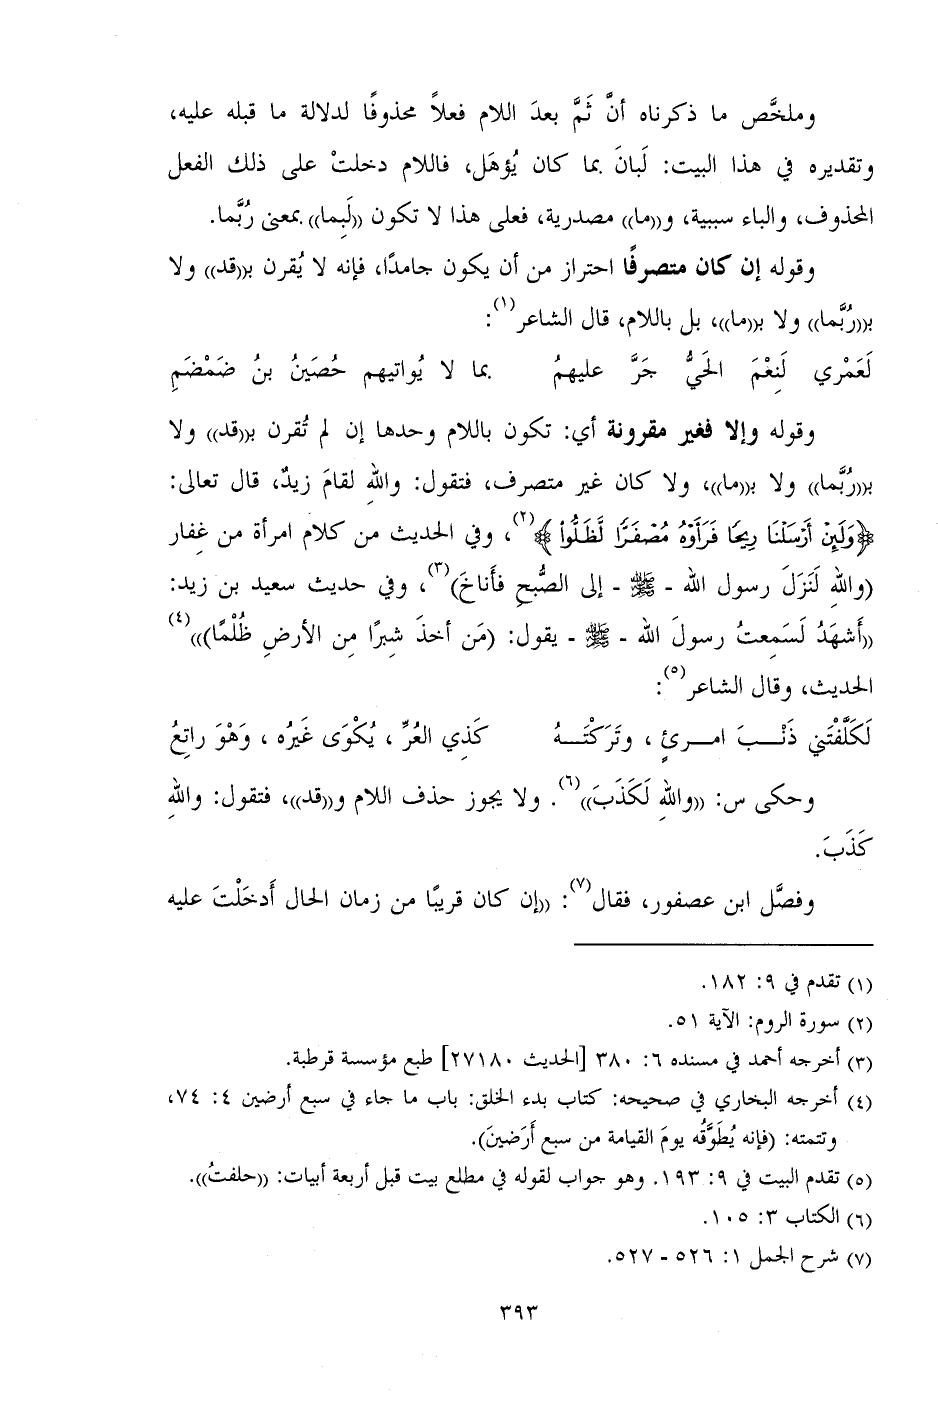 وملخَّص ما ذكرناه أنَّ ثَمَّ بعدَ اللام فعلاً محذوفًا لدلالة ما قبله عليه،
وتقديره في هذا البيت: لَبانَ بما كان يُؤهَل، فاللام دخلتْ على ذلك الفعل
المحذوف، والباء سببية، و((ما)) مصدرية، فعلى هذا لا تكون ((لَبِما)) بمعنى رُبَّما.
وقوله إن كان متصرفًا احتراز من أن يكون جامدًا، فإنه لا يُقرن بـ((قد)) ولا
بـ((رُبَّما)) ولا بـ((ما))، بل باللام، قال الشاعر(١):
لَعَمْري لَنِعْمَ الحَيُّ جَرَّ عليهمُ بما لا يُواتيهم حُصَينُ بنُ ضَمْضَمِ
وقوله وإلا فغير مقرونة أي: تكون باللام وحدها إن لم تُقرن بـ((قد)) ولا
بـ((رُبَّما)) ولا بـ((ما))، ولا كان غير متصرف، فتقول: واللهِ لقامَ زيدٌ، قال تعالى:
﴿وَلَئِنْ أَرْسَلْنَا رِيحًا فَرَأَوْهُ مُصْفَرًّا لَّظَلُّواْ﴾(٢)، وفي الحديث من كلام امرأة من غِفار
(واللهِ لَنَزلَ رسول الله - ﷺ - إلى الصُّبحِ فأَناخَ)(٣)، وفي حديث سعيد بن زيد:
((أَشهَدُ لَسَمِعتُ رسولَ الله - ﷺ - يقول: (مَن أخذَ شِبرًا مِن الأرضِ ظُلْمًا))))(٤)
الحديث، وقال الشاعر(٥):
لَكَلَّفْتَني ذَنْـــبَ امـــرئٍ ، وتَرَكْتَـــهُ كَذِي العُرِّ ، يُكْوَى غَيرُه ، وَهْوَ راتِعُ
وحكى س: ((واللهِ لَكَذَبَ))(٦). ولا يجوز حذف اللام و((قد))، فتقول: واللهِ
كَذَبَ.
وفصَّل ابن عصفور، فقال(٧): ((إن كان قريبًا من زمان الحال أَدخَلْتَ عليه
(١) تقدم في ٩: ١٨٢.
(٢) سورة الروم: الآية ٥١.
(٣) أخرجه أحمد في مسنده ٦: ٣٨٠ [الحديث ٢٧١٨٠] طبع مؤسسة قرطبة.
(٤) أخرجه البخاري في صحيحه: كتاب بدء الخلق: باب ما جاء في سبع أرضين ٤: ٧٤،
وتتمته: (فإنه يُطَوَّقُه يومَ القيامة من سبع أَرَضينَ).
(٥) تقدم البيت في ٩: ١٩٣. وهو جواب لقوله في مطلع بيت قبل أربعة أبيات: ((حلفتُ)).
(٦) الكتاب ٣: ١٠٥.
(٧) شرح الجمل ١: ٥٢٦ - ٥٢٧.
٣٩٣